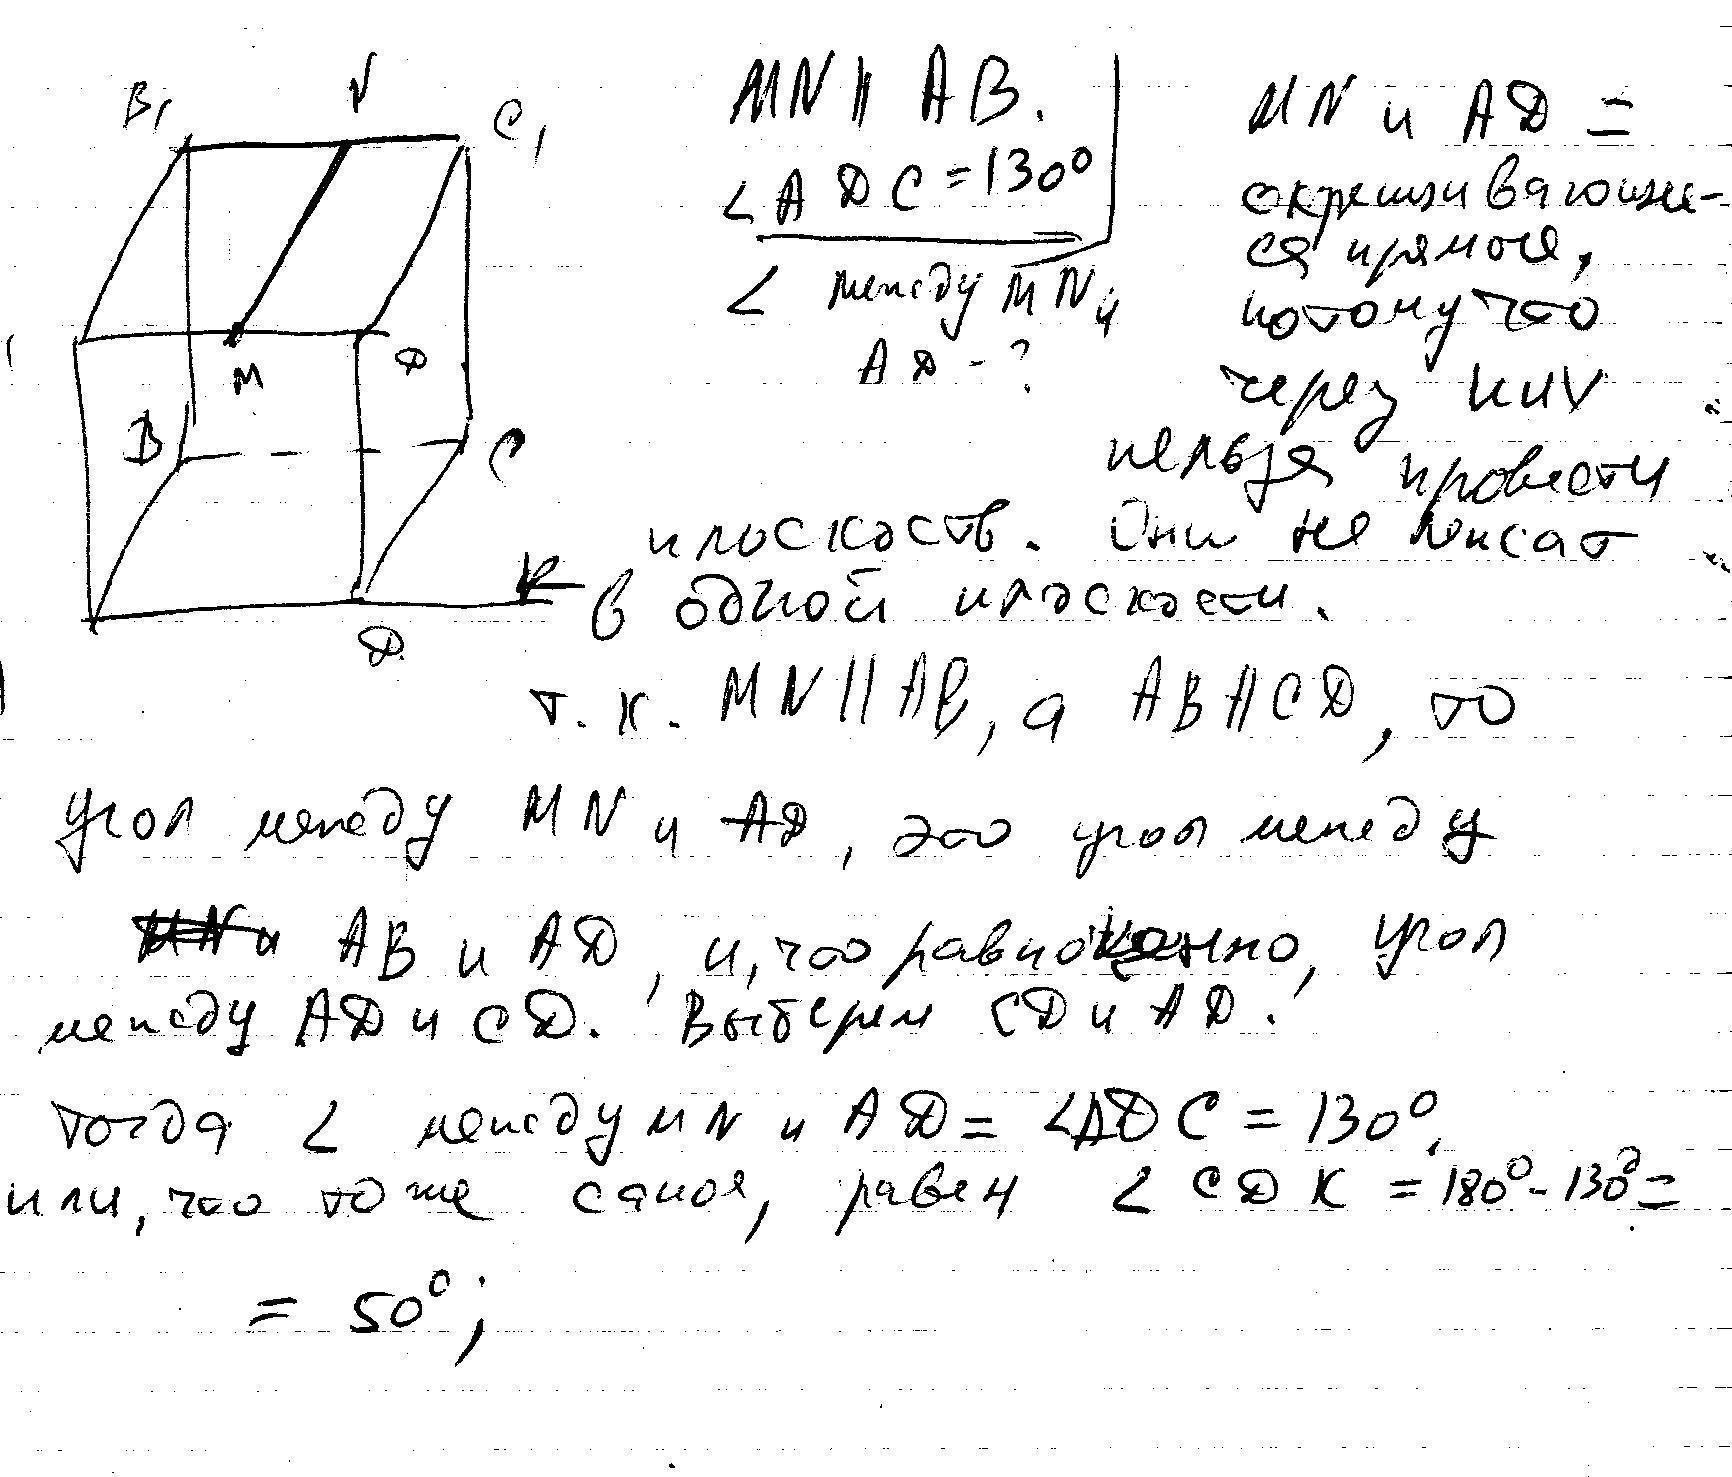 B₁ N C₁
MN ∥ AB.
∠ADC=130°
∠ между MN и
AD - ?
MN и AD =
скрещивающие-
ся прямые,
потому что
через них
нельзя провести
плоскость. Они не лежат
в одной плоскости.
M D
B C
K
D
т.к. MN ∥ AB, а AB ∥ CD, то
угол между MN и AD, это угол между
AB и AD, и, что равноценно, угол
между AD и CD. Выберем CD и AD.
Тогда ∠ между MN и AD = ∠ADC = 130°,
или, что то же самое, равен ∠CDK = 180° - 130° =
= 50°;